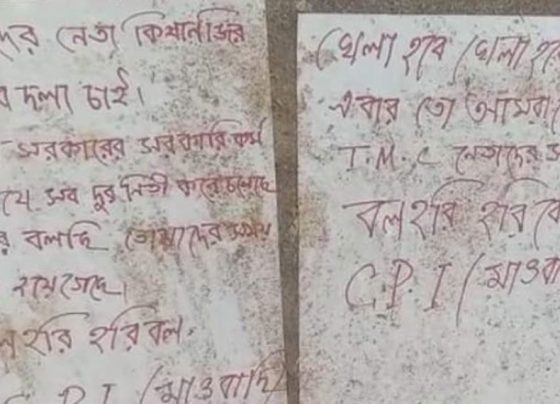 দের নেতা কিষানজির
বদলা চাই।
সরকারের সরকারি কর্ম
যে সব দুর্নিতী করে চলেছে
বলছি তোমাদের সময়
হয়ে গেছে।
হরি হরি বল
C.P.I (মাওবাদি
খেলা হবে খেলা হবে
এবার তো আমরা
T.M.C নেতাদের
বল হরি হরি
C.P.I (মাওবা